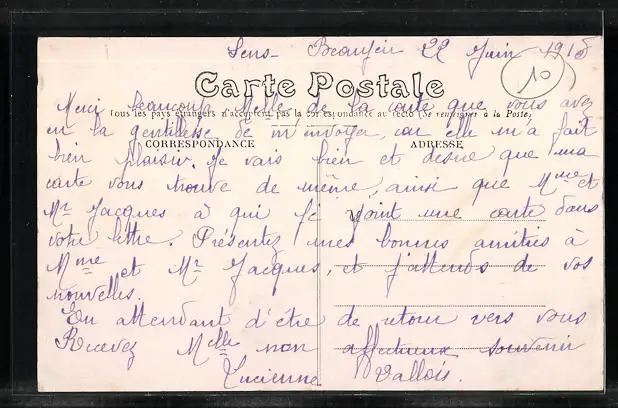 Sens- Beaujeu 22 Juin 1918
10
Carte Postale
Merci beaucoup Melle de la carte que vous avez
Tous les pays étrangers n'acceptent pas la correspondance au recto (Se renseigner à la Poste)
eu la gentillesse de m'envoyer, car elle m'a fait
CORRESPONDANCE ADRESSE
bien plaisir. Je vais bien et désire que ma
carte vous trouve de même, ainsi que Mme et
Mr Jacques à qui je joint une carte dans
votre lettre. Présentez mes bonnes amitiés à
Mme et Mr Jacques, et j'attends de vos
nouvelles.
En attendant d'être de retour vers vous
Recevez Melle mon affectueux souvenir
Lucienne Vallois.